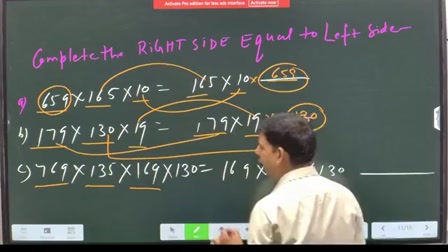 Activate Pro edition for less ads interface (Activate Pro)
Complete the RIGHT SIDE Equal to Left Side
a) 659 × 165 × 10 = 165 × 10 × 659
b) 179 × 130 × 19 = 179 × 19 × 130
c) 769 × 135 × 169 × 130 = 169 × 130
11/16